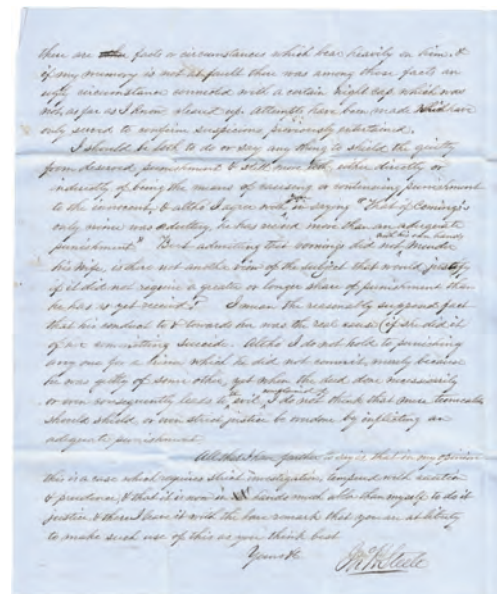 there are other facts or circumstances which bear heavily on him. &
if my memory is not at fault there was among those facts an
ugly circumstance connected with a certain night cap which was
not, as far as I know cleared up. Attempts have been made which have
only served to confirm suspicions previously entertained.
I should be loth to do or say any thing to shield the guilty
from deserved punishment & still more loth, either directly or
indirectly of being the means of causing or continuing punishment
to the innocent, & altho I agree with in saying "that if Comings's
only crime was adultery, he has received more than an adequate
punishment" But admitting that Comings did not with his own hands Murder
his Wife, is there not another view of the subject that would justify
if it did not require a greater or longer share of punishment than
he has as yet received? I mean the reasonably supposed fact
that his conduct to & towards her was the real cause (if she did it)
of her committing suicide. Altho I do not hold to punishing
any one for a crime which he did not commit, merely because
he was guilty of some other, yet when the deed done necessarily
or even consequently leads to the evil complained of, I do not think that mere technicalities
should shield, or even strict justice be undone by inflicting an
adequate punishment.
All that I have further to say is, that in my opinion
this is a case which requires strict investigation, tempered with caution
& prudence, & that it is now in hands much abler than myself to do it
justice & there I leave it with the bare remark that you are at liberty
to make such use of this as you think best
Yours &c
Jno H Steele